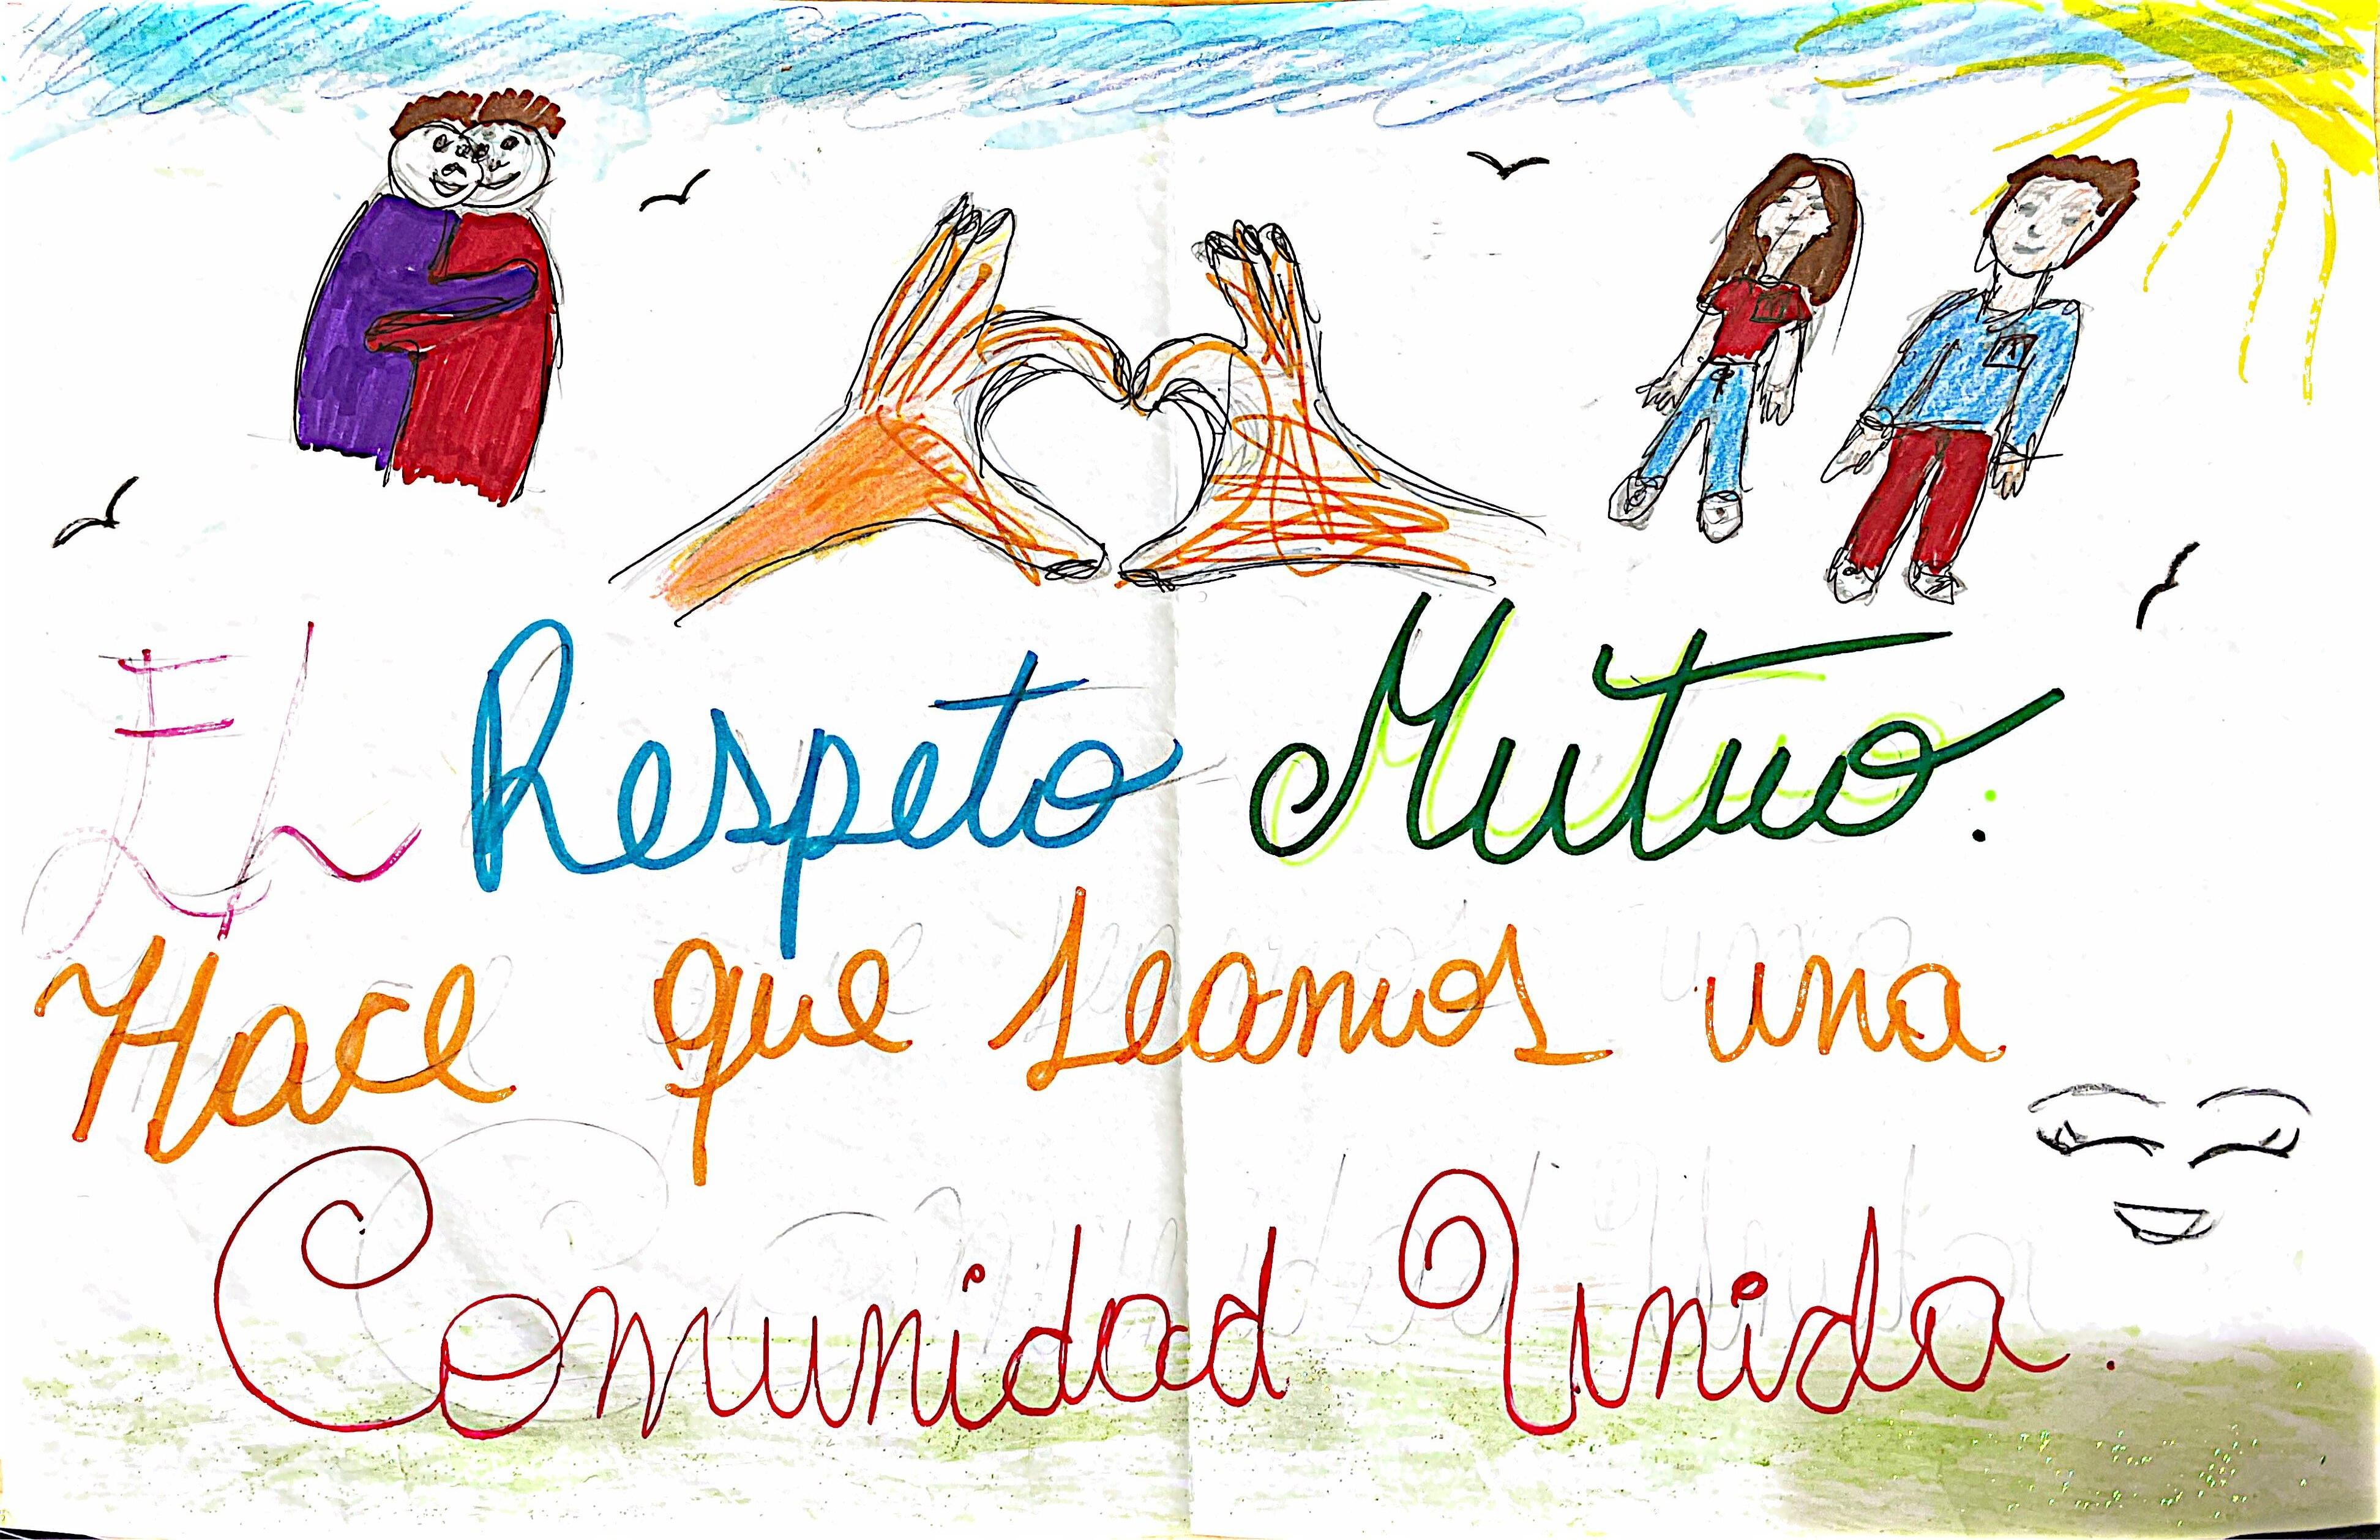 El Respeto Mutuo.
Hace que seamos una
Comunidad Unida.